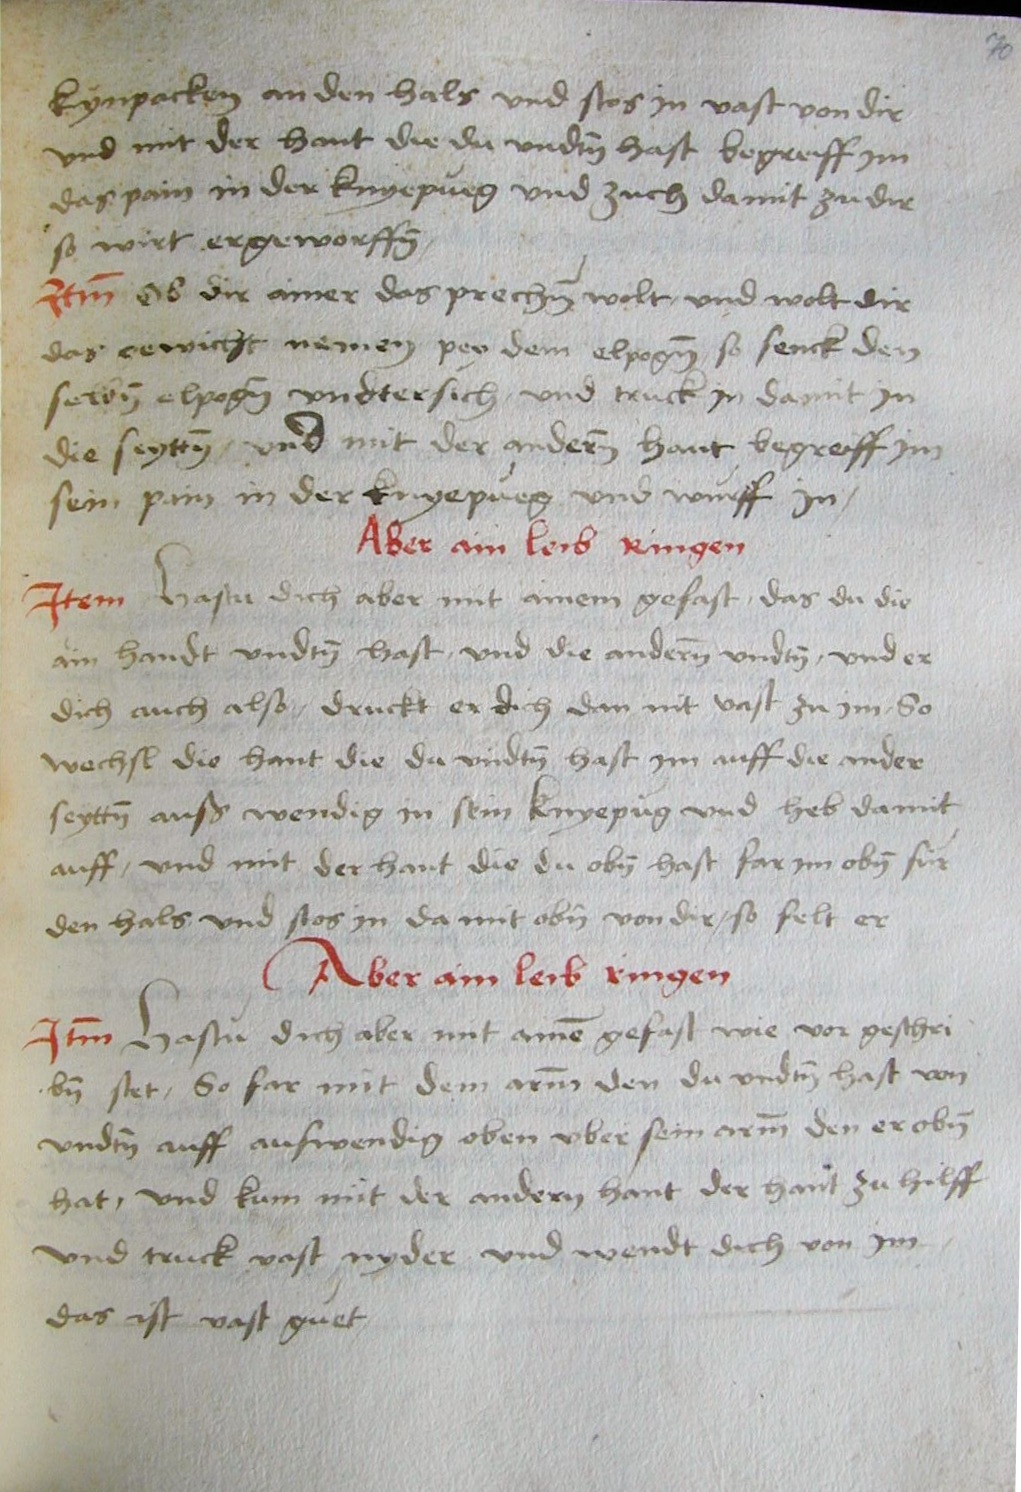 70
kynpacken an den hals vnd stos in vast von dir
vnd mit der hant die du vndtn̄ hast begreiff im
das pain in der knyepüeg vnd zuch damit zu dir
so wirt er geworffn̄
Itm̄ Ob dir ainer das prechn̄ wolt / vnd wolt dir
das gewicht nemen pey dem elpogn̄ / so senck den
selbn̄ elpogn̄ vndtersich / vnd truck in damit in
die seyttn̄ / vnd mit der andern̄ hant begreiff im
sein pain in der knyepüeg vnd würff in /
Aber ain leib Ringen
Item Hastu dich aber mit ainem gefast / das du die
ain handt vndtn̄ hast / vnd die andern̄ vndtn̄ / vnd er
dich auch also / druckt er dich dan nit vast zu im / So
wechsl die hant die du vndtn̄ hast im auff die ander
seyttn̄ auss wendig in sein knyepüg vnd heb damit
auff / vnd mit der hant die du obn̄ hast far im obn̄ für
den hals vnd stos in damit obn̄ von dir / so felt er
Aber ain leib ringen
Itm̄ Hastu dich aber mit ainē gefast wie vor geschri
bn̄ stet / So far mit dem arm̄ den du vndtn̄ hast von
vndtn̄ auff auswendig oben vber sein arm̄ den er obn̄
hat / vnd kum mit der andern hant der hant zu hilff
vnd truck vast nyder vnd wendt dich von im /
das ist vast guet